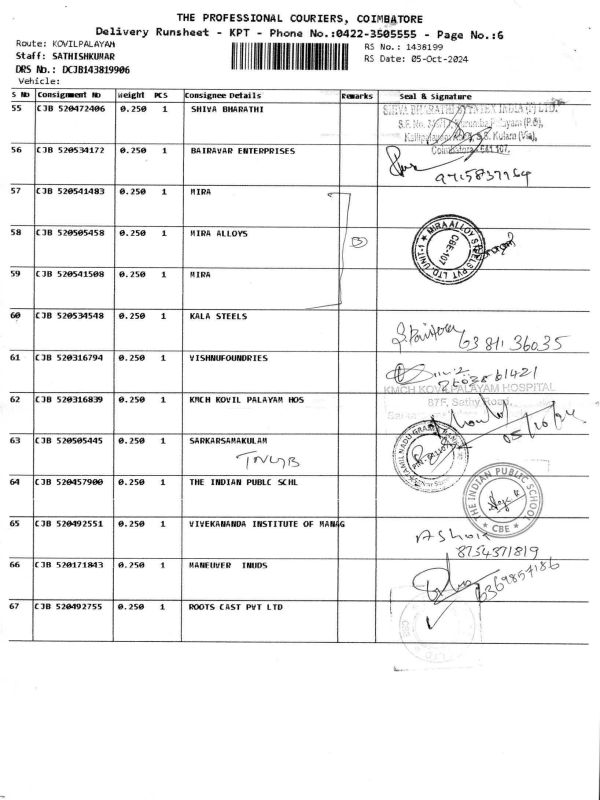 THE PROFESSIONAL COURIERS, COIMBATORE
Delivery Runsheet - KPT - Phone No.:0422-3505555 - Page No.:6
Route: KOVILPALAYAM
RS No.: 1438199
Staff: SATHISHKUMAR
RS Date: 05-Oct-2024
DRS No.: DCJB143819906
Vehicle:
S No Consignment No Weight PCS Consignee Details Remarks Seal & Signature
55 CJB 520472406 0.250 1 SHIVA BHARATHI
Coimbatore - 641 107.
56 CJB 520534172 0.250 1 BAIRAVAR ENTERPRISES
57 CJB 520541483 0.250 1 MIRA
58 CJB 520505458 0.250 1 MIRA ALLOYS
3
MIRA ALLOY STEELS PVT LTD. UNIT-1
CBE-107
59 CJB 520541508 0.250 1 MIRA
60 CJB 520534548 0.250 1 KALA STEELS
63811 36035
61 CJB 520316794 0.250 1 VISHNUFOUNDRIES
KMCH KOVIL PALAYAM HOSPITAL
87F, Sathy Road,
62 CJB 520316839 0.250 1 KMCH KOVIL PALAYAM HOS
05/10/24
63 CJB 520505445 0.250 1 SARKARSAMAKULAM
TNGB
64 CJB 520457900 0.250 1 THE INDIAN PUBLC SCHL
THE INDIAN PUBLIC SCHOOL
CBE
65 CJB 520492551 0.250 1 VIVEKANANDA INSTITUTE OF MANAG
Ashok
8754371819
66 CJB 520171843 0.250 1 MANEUVER INUDS
6369857186
67 CJB 520492755 0.250 1 ROOTS CAST PVT LTD